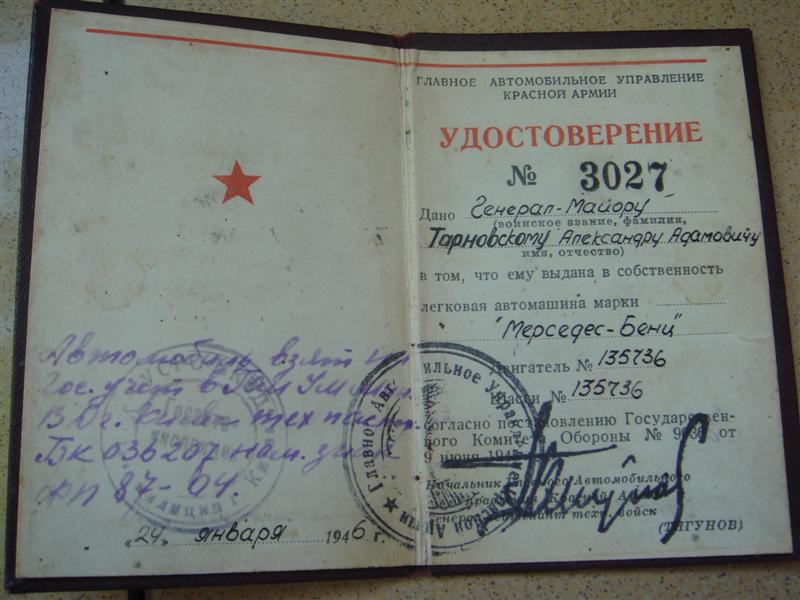 Автомобиль взят на
Гос. учет в ГАИ УМ
тех
БК 036207 ном. знак
87-04.
"24" января 1946 г.
ГЛАВНОЕ АВТОМОБИЛЬНОЕ УПРАВЛЕНИЕ
КРАСНОЙ АРМИИ
УДОСТОВЕРЕНИЕ
№ 3027
Дано Генерал-Майору
(воинское звание, фамилия,
Тарновскому Александру Адамовичу
имя, отчество)
в том, что ему выдана в собственность
легковая автомашина марки
"Мерседес-Бенц"
Двигатель № 135736
Шасси № 135736
согласно постановлению Государствен-
ного Комитета Обороны № 9036 от
9 июня 194
Начальник Главного Автомобильного
Управления Красной Армии
генерал-лейтенант техн. войск
(ТЯГУНОВ)
Главное Автомобильное Управление Красной Армии